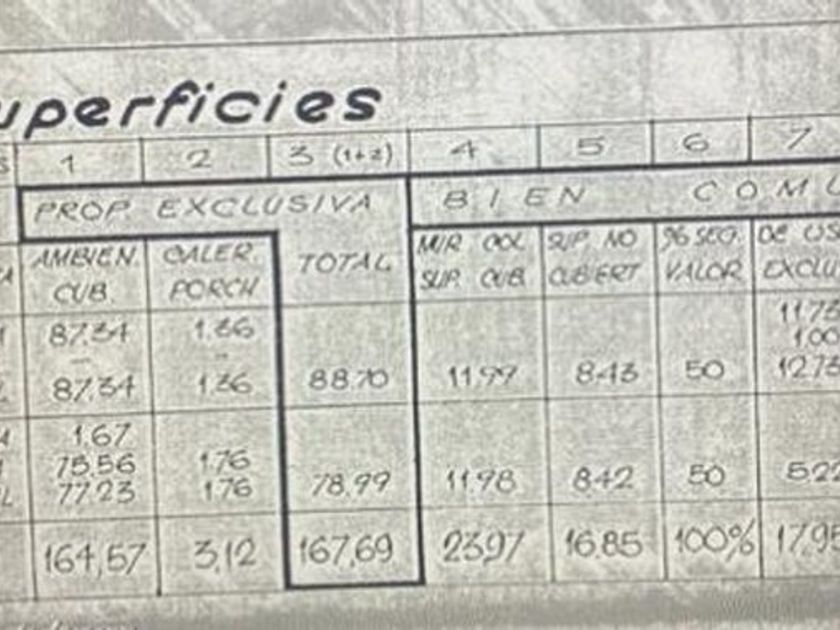 uperficies
S 1 2 3 (1+2) 4 5 6 7
PROP. EXCLUSIVA BIEN COMU
AMBIEN. GALER. TOTAL MUR. COL. SUP. NO % SEG. DE US
CUB. PORCH SUP. CUB. CUBIERT VALOR EXCLU
87.34 1.36 11.73
1.00
87.34 1.36 88.70 11.99 8.43 50 12.73
1.67
75.56 1.76
77.23 1.76 78.99 11.98 8.42 50 5.22
164,57 3,12 167,69 23,97 16.85 100% 17,95